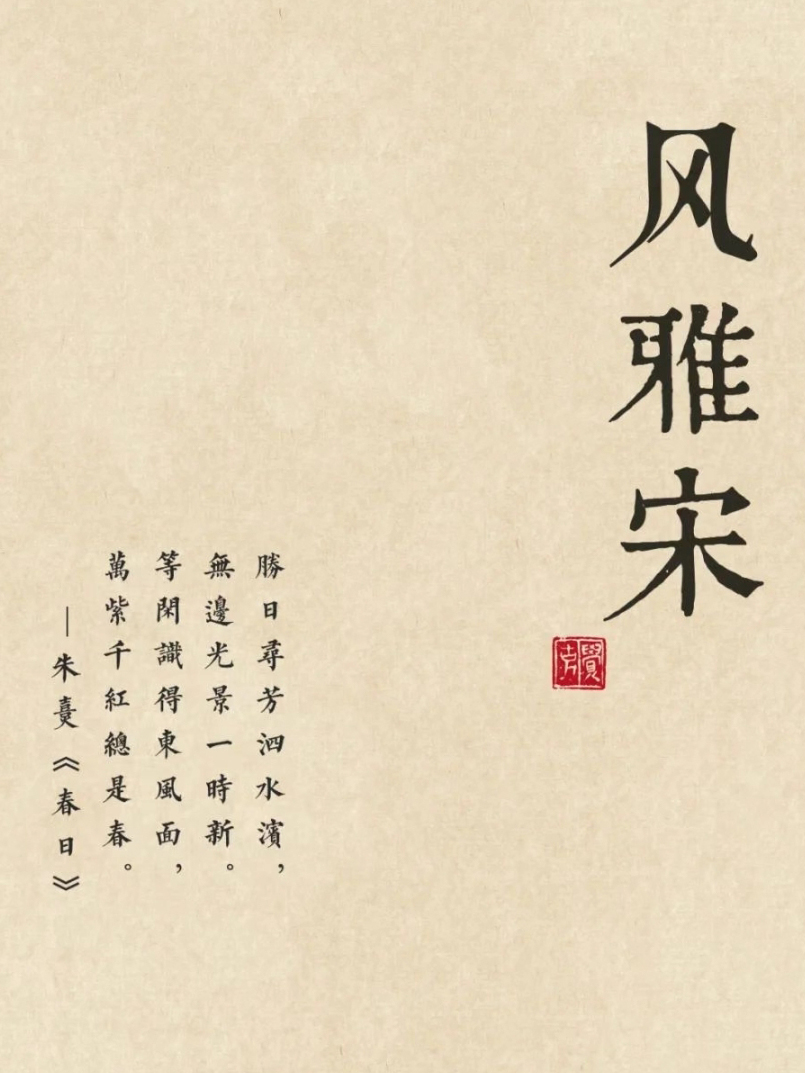 风雅宋
勝日尋芳泗水濱，
無邊光景一時新。
等閑識得東風面，
萬紫千紅總是春。
—朱熹《春日》